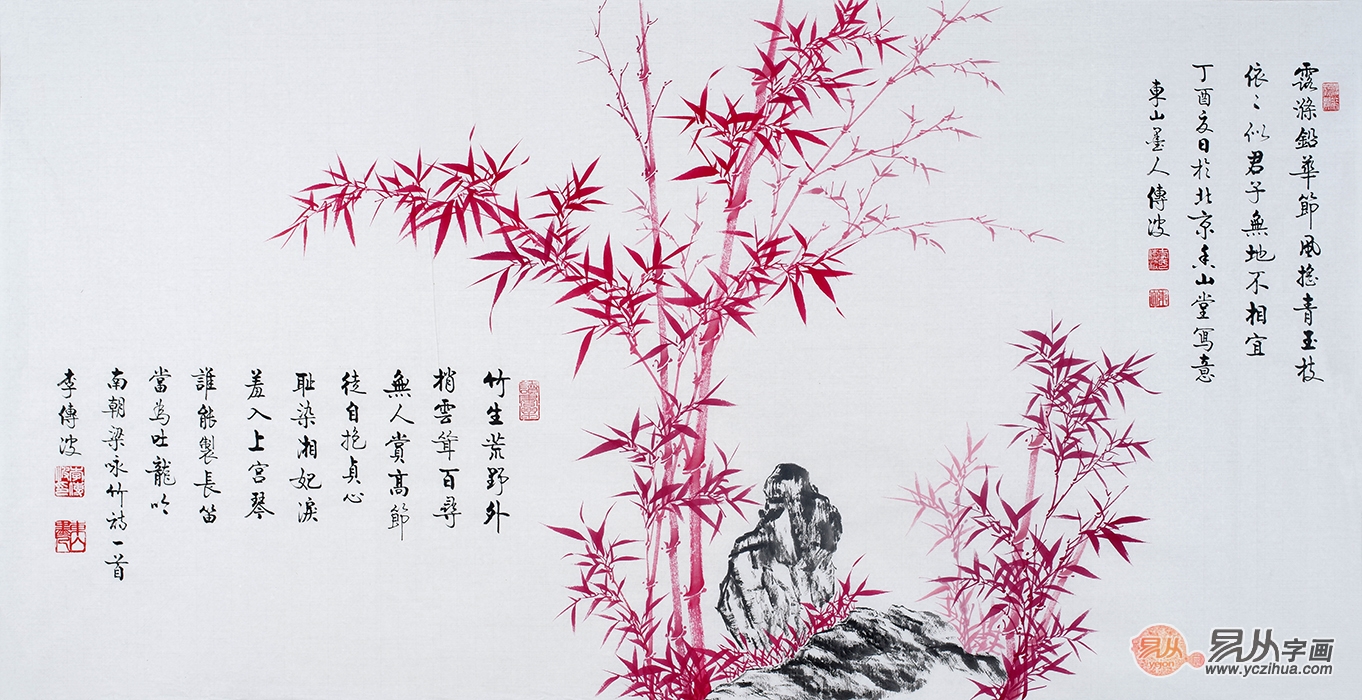 露滌鉛華節風搖青玉枝
依〻似君子無地不相宜
丁酉夏日於北京香山堂寫意
東山墨人傳波
竹生荒野外
梢雲聳百尋
無人賞高節
徒自抱貞心
耻染湘妃淚
羞入上宮琴
誰能製長笛
當為吐龍吟
南朝梁咏竹詩一首
李傳波
易从
yicon
易从字画
www.yczihua.com